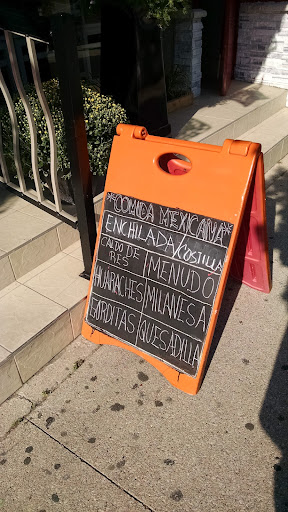 *COMIDA MEXICANA*
ENCHILADA/COSTILLA
CALDO DE RES MENUDO
HUARACHES MILANESA
GORDITAS QUESADILLA